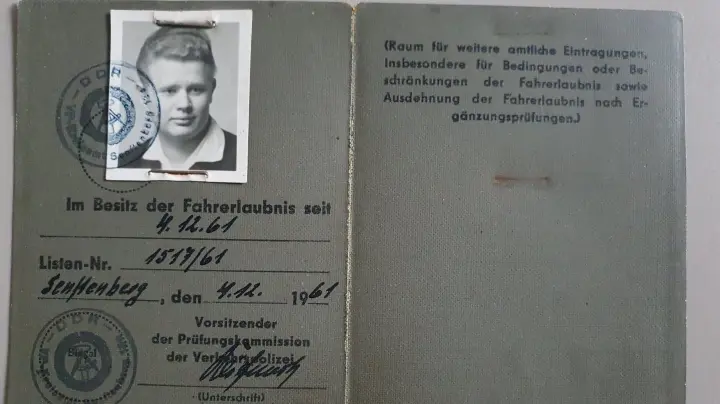 DDR
Im Besitz der Fahrerlaubnis seit
4.12.61
Listen-Nr. 1517/61
Senftenberg, den 4.12. 1961
Vorsitzender
der Prüfungskommission
der Verkehrspolizei
(Unterschrift)
DDR
Siegel
(Raum für weitere amtliche Eintragungen,
Insbesondere für Bedingungen oder Be-
schränkungen der Fahrerlaubnis sowie
Ausdehnung der Fahrerlaubnis nach Er-
gänzungsprüfungen.)